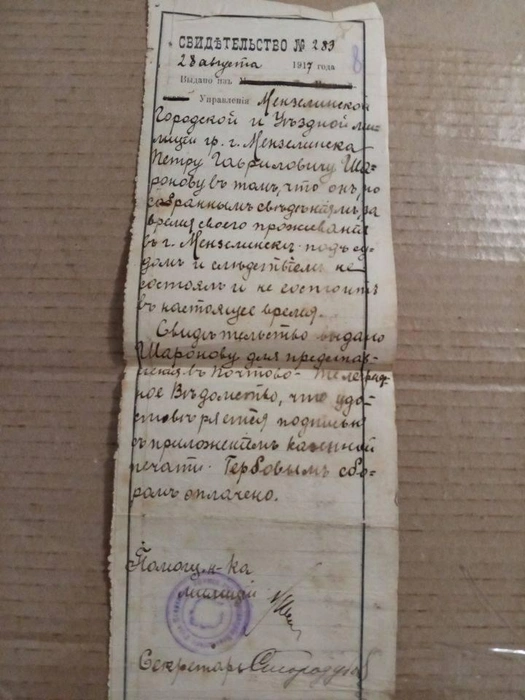 СВИДѢТЕЛЬСТВО № 283
28 августа 1917 года
8
Выдано изъ
Управленія Мензелинской
Городской и Уѣздной ми-
лиціи гр. г. Мензелинска
Петру Гавриловичу Ша-
ронову въ томъ, что онъ, по
собраннымъ свѣдѣніямъ, за
время своего проживанія
въ г. Мензелинскѣ подъ су-
домъ и слѣдствіемъ не
состоялъ и не состоитъ
въ настоящее время.
Свидѣтельство выдано
Шаронову для представ-
ленія въ Почтово-Телеграф-
ное Вѣдомство, что удо-
стовѣряется подписью
съ приложеніемъ казенной
печати. Гербовымъ сбо-
ромъ оплачено.
Помощ. н-ка
милиціи
Секретарь